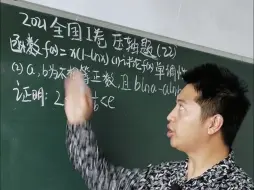 2021全国1卷 压轴题(22)
函数f(x)=x(1-lnx) (1)讨论f(x)单调性
(2) a,b为 等正数,且 blna-alnb
证明: 2 <e